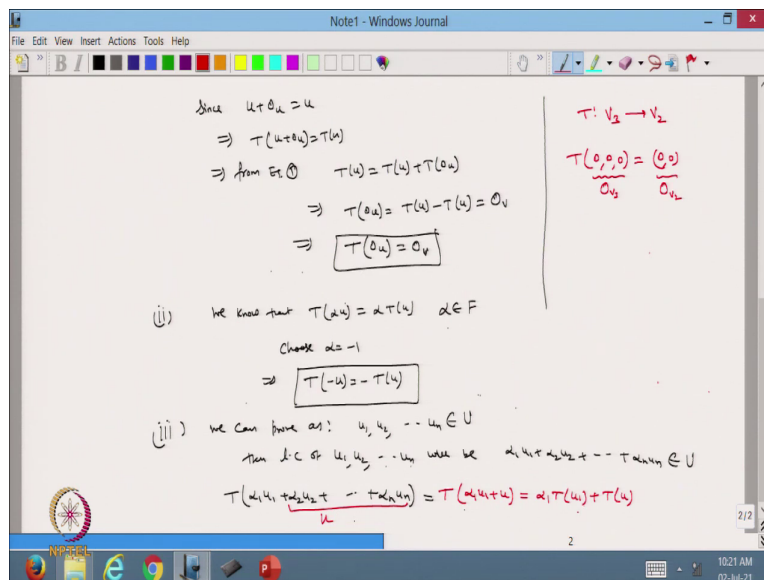 Note1 - Windows Journal
File Edit View Insert Actions Tools Help
B I
Since u+0u = u
⇒ T(u+0u)=T(u)
⇒ from Eq. ① T(u) = T(u) + T(0u)
⇒ T(0u) = T(u) - T(u) = 0v
⇒ T(0u) = 0v
(ii) we know that T(αu) = αT(u) α ∈ F
Choose α = -1
⇒ T(-u) = - T(u)
(iii) we can prove as: u1, u2, -- un ∈ U
then l.c of u1, u2, -- un will be α1u1 + α2u2 + -- + αnun ∈ U
T(α1u1 + α2u2 + -- + αnun) = T(α1u1 + u) = α1T(u1) + T(u)
u
T: V3 → V2
T(0,0,0) = (0,0)
0V3 0V2
NPTEL
2/2
2
10:21 AM
02-Jul-21